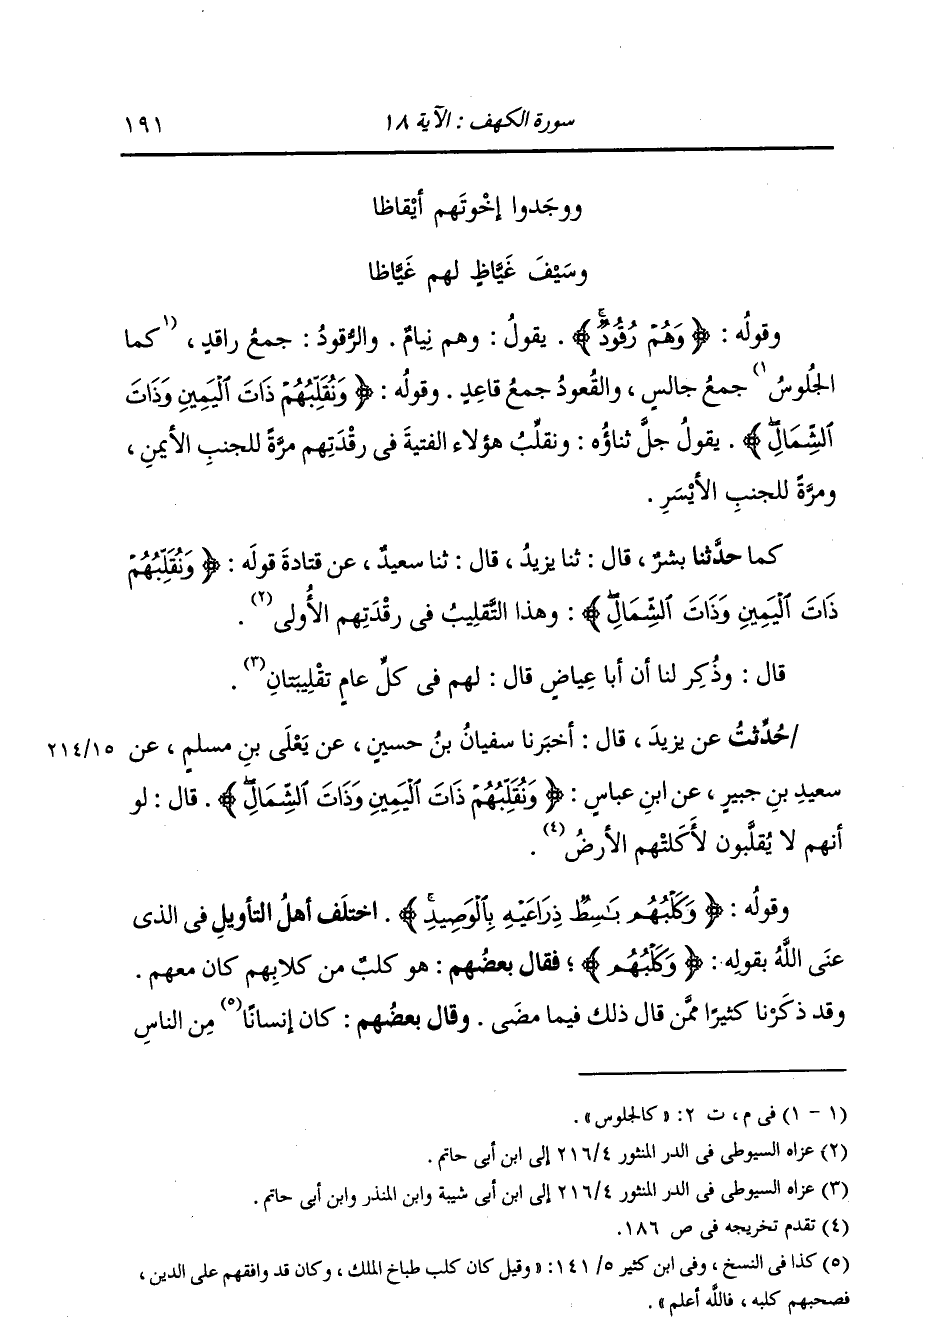 سورة الكهف : الآية ١٨
١٩١
ووجَدوا إخْوتَهم أيْقاظا
وسَيْفَ غَيَّاظٍ لهم غَيَّاظا
وقولُه : ﴿ وَهُمْ رُقُودٌۚ ﴾ . يقولُ : وهم نِيامٌ . والرُّقودُ : جمعُ راقدٍ ، (١كما
الجُلوسُ١) جمعُ جالسٍ ، والقُعودُ جمعُ قاعِدٍ . وقولُه : ﴿ وَنُقَلِّبُهُمْ ذَاتَ ٱلْيَمِينِ وَذَاتَ
ٱلشِّمَالِۖ ﴾ . يقولُ جلَّ ثناؤُه : ونقلِّبُ هؤلاء الفتيةَ فى رقْدَتِهم مرَّةً للجنبِ الأيمنِ ،
ومرَّةً للجنبِ الأيْسَرِ .
كما حدَّثنا بشرٌ ، قال : ثنا يزيدُ ، قال : ثنا سعيدٌ ، عن قتادةَ قولَه : ﴿ وَنُقَلِّبُهُمْ
ذَاتَ ٱلْيَمِينِ وَذَاتَ ٱلشِّمَالِۖ ﴾ : وهذا التَّقلِيبُ فى رقْدَتِهم الأُولى(٢) .
قال : وذُكِر لنا أن أبا عِياضٍ قال : لهم فى كلِّ عامٍ تقْلِيبَتانِ(٣) .
/حُدِّثتُ عن يزيدَ ، قال : أخبَرنا سفيانُ بنُ حسينٍ ، عن يَعْلَى بنِ مسلمٍ ، عن ٢١٤/١٥
سعيدِ بنِ جبيرٍ ، عن ابنِ عباسٍ : ﴿ وَنُقَلِّبُهُمْ ذَاتَ ٱلْيَمِينِ وَذَاتَ ٱلشِّمَالِۖ ﴾ . قال : لو
أنهم لا يُقلَّبون لأَكَلتْهم الأرضُ(٤) .
وقولُه : ﴿ وَكَلْبُهُم بَٰسِطٌ ذِرَاعَيْهِ بِٱلْوَصِيدِۚ ﴾ . اختلَف أهلُ التأويلِ فى الذى
عنَى اللَّهُ بقولِه : ﴿ وَكَلْبُهُم ﴾ ؛ فقال بعضُهم : هو كلبٌ من كلابِهم كان معهم .
وقد ذكَرْنا كثيرًا ممَّن قال ذلك فيما مضَى . وقال بعضُهم : كان إنسانًا(٥) مِن الناسِ
(١ - ١) فى م ، ت ٢: « كالجلوس » .
(٢) عزاه السيوطى فى الدر المنثور ٢١٦/٤ إلى ابن أبى حاتم .
(٣) عزاه السيوطى فى الدر المنثور ٢١٦/٤ إلى ابن أبى شيبة وابن المنذر وابن أبى حاتم .
(٤) تقدم تخريجه فى ص ١٨٦.
(٥) كذا فى النسخ ، وفى ابن كثير ٥/ ١٤١: « وقيل كان كلب طباخ الملك ، وكان قد وافقهم على الدين ،
فصحبهم كلبه ، فاللَّه أعلم » .